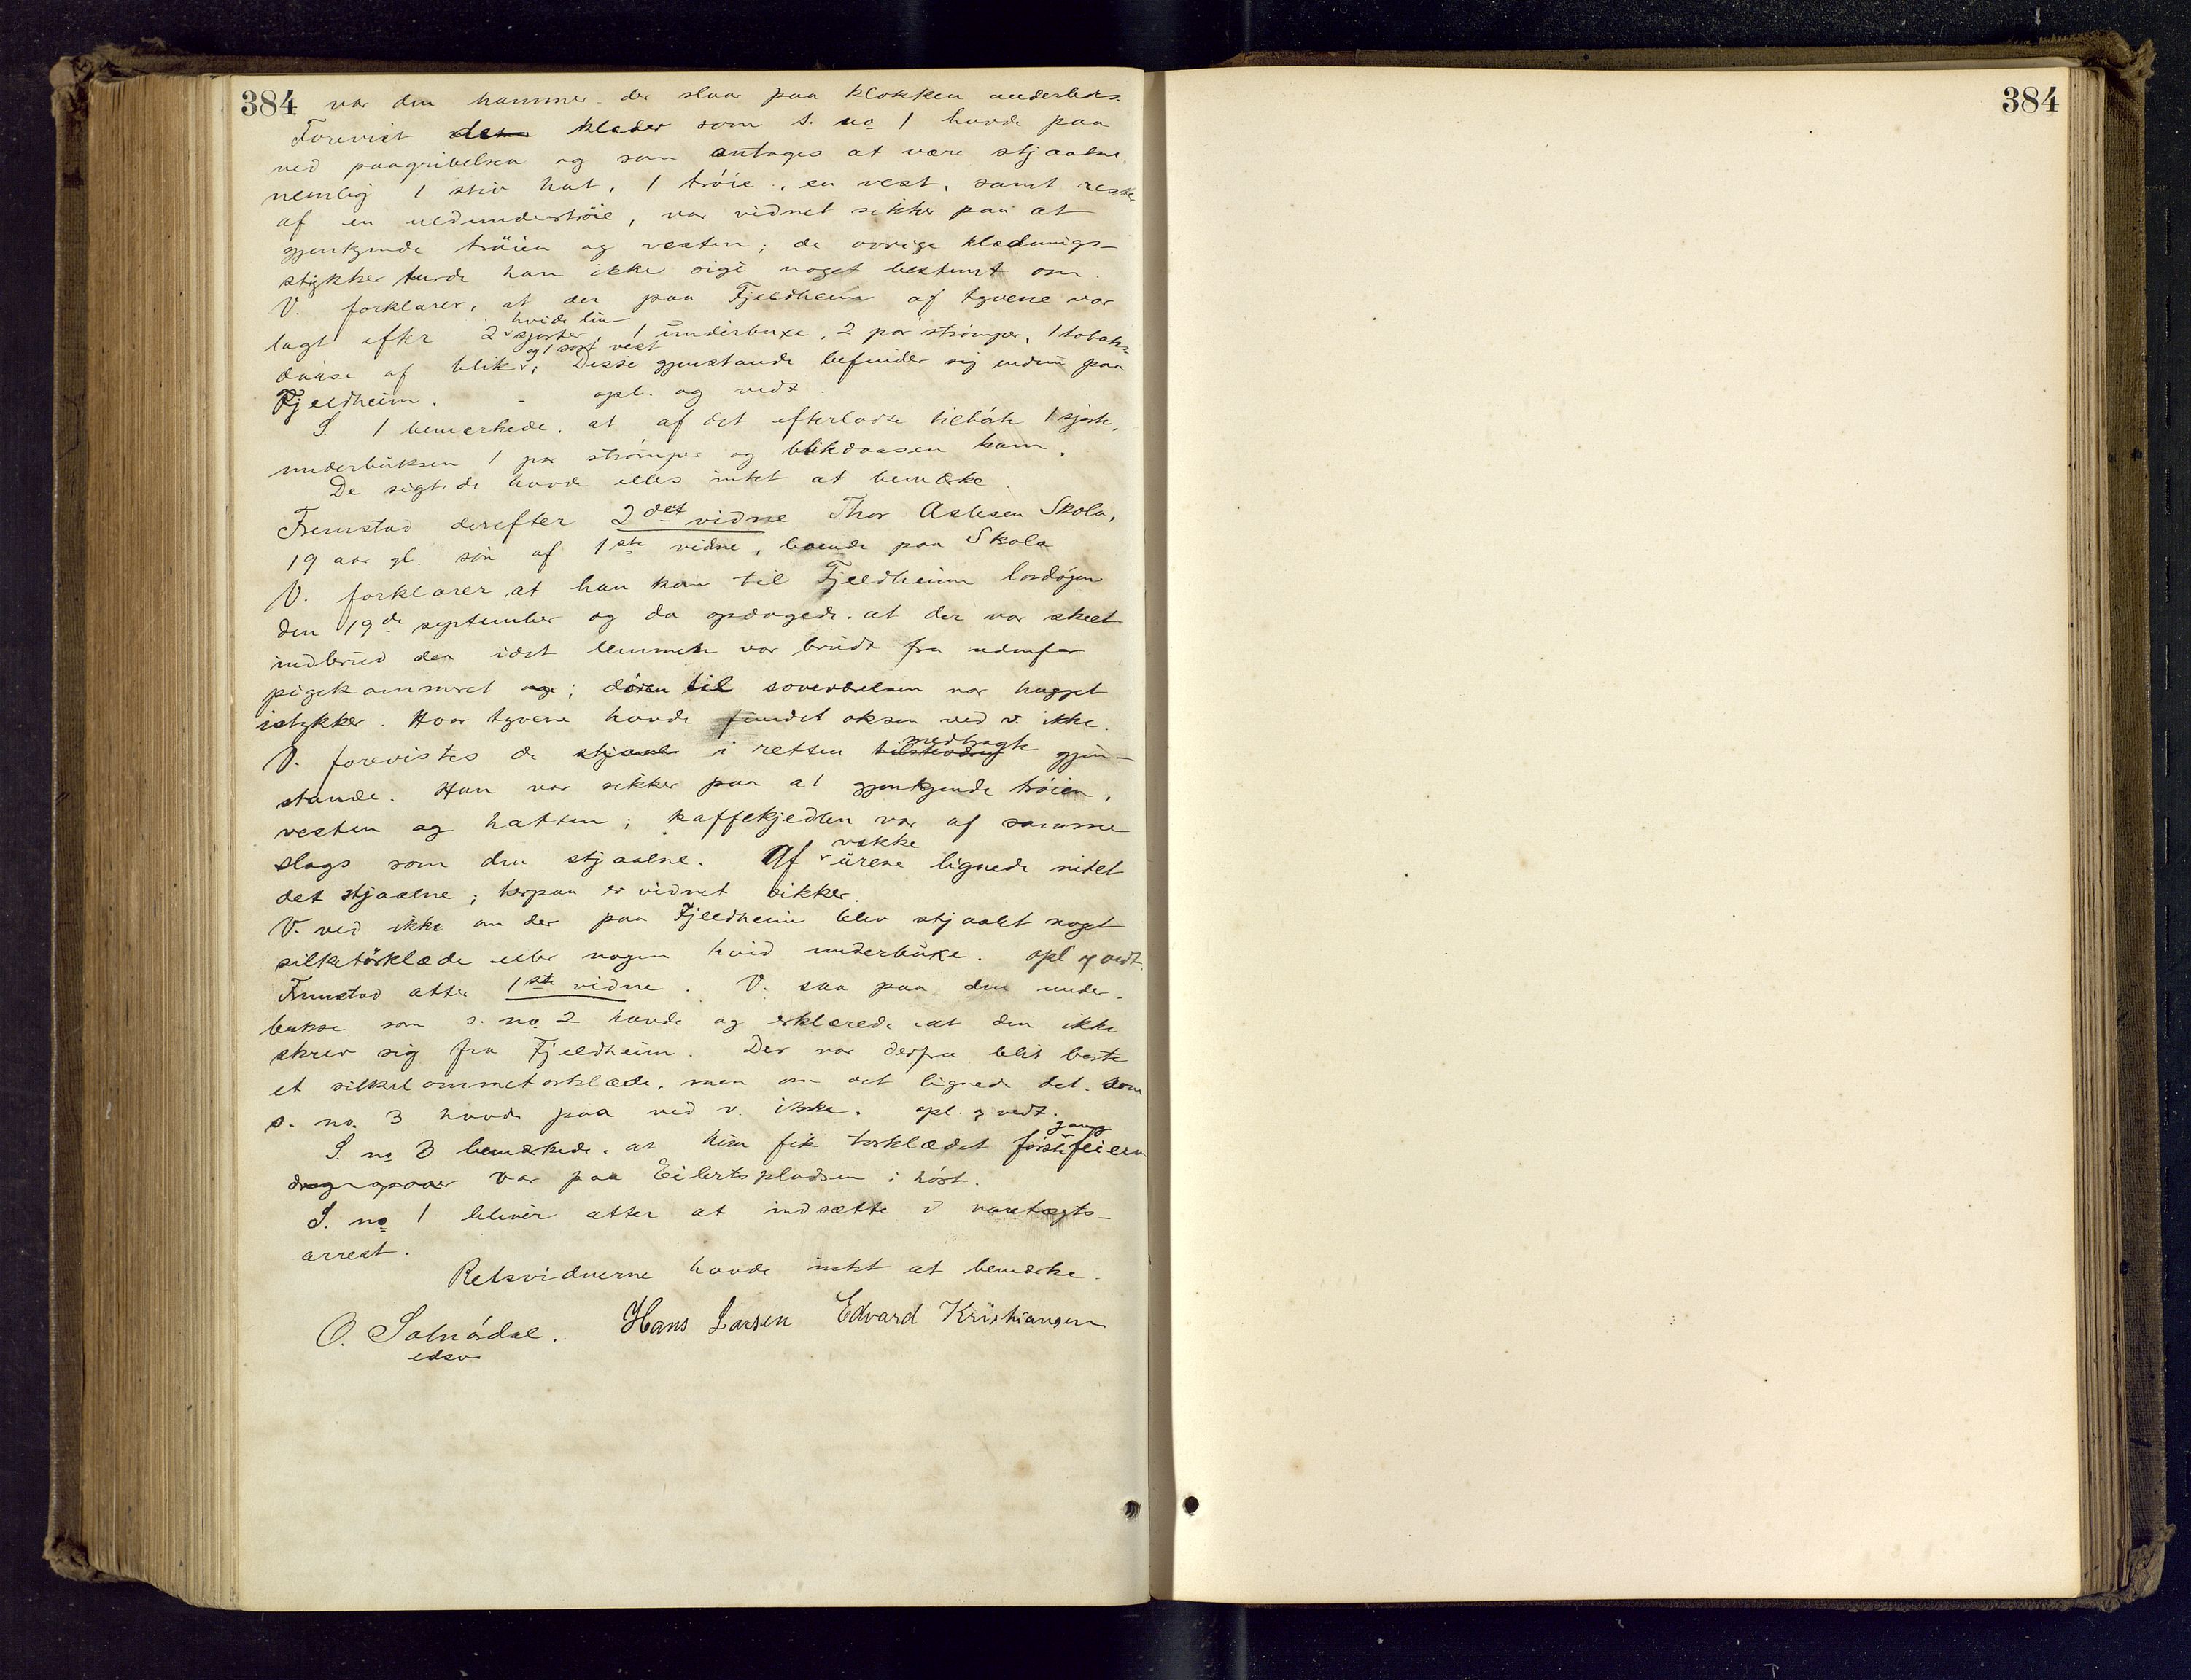 384 var den hammer der slaar paa klokken anderledes.
Forevist den klæder som s. no 1 havde paa
ved paagribelsen og som antages at være stjaalne
nemlig 1 stiv hat, 1 trøie, en vest, samt rester
af en uldundertrøie, var vidnet sikker paa at
gjenkjende trøien og vesten; de øvrige klædnings-
stykker turde han ikke sige noget bestemt om.
V. forklarer, at der paa Fjeldheim af tyvene var
hvide lin-
lagt efter 2 skjorter, 1 underbuxe, 2 par strømper, 1 tobaks-
og 1 sort vest
daase af blik; Disse gjenstande befinder sig endnu paa
Fjeldheim. - opl. og vedt.
S. 1 bemærkede, at af det efterladte tilhørte 1 skjorte,
underbuksen 1 par strømper og blikdaasen ham.
De sigtede havde elles intet at bemærke.
Fremstod derefter 2det vidne Thor Aslesen Skola,
19 aar gl. søn af 1ste vidne, boende paa Skola
V. forklarer, at han kom til Fjeldheim lørdagen
den 19de september og da opdagede, at der var skeet
indbrud der idet lemmen var brudt fra udenfor
pigekammeret og; døren til soveværelsen var hugget
istykker. Hvor tyvene havde fundet øksen ved v. ikke.
medbragte
V. forevistes de stjaal i retten tilstedevær gjen-
stande. Han var sikker paa at gjenkjende trøien,
vesten og hatten; kaffekjedlen var af samme
vække
slags som den stjaalne. Af urene lignede intet
det stjaalne; herpaa er vidnet sikker.
V. ved ikke om der paa Fjeldheim blev stjaalet noget
silketørklæde eller nogen hvid underbuxe. opl og vedt.
Fremstod atter 1ste vidne. V. saa paa den under-
bukse som s. no 2 havde og erklærede at den ikke
skrev sig fra Fjeldheim. Der var derfra blit borte
et silkelommetørklæde, men om det lignede det som
s. no. 3 havde paa ved v. ikke. opl. og vedt.
gang
S. no 3 bemærkede, at hun fik tørklædet første feieren
var paa Eilertspladsen i høst.
S. no 1 blever atter at indsætte i varetægts-
arrest.
Retsvidnerne havde intet at bemærke.
O. Solnørdal. Hans Larsen Edvard Kristiansen
edsv
384